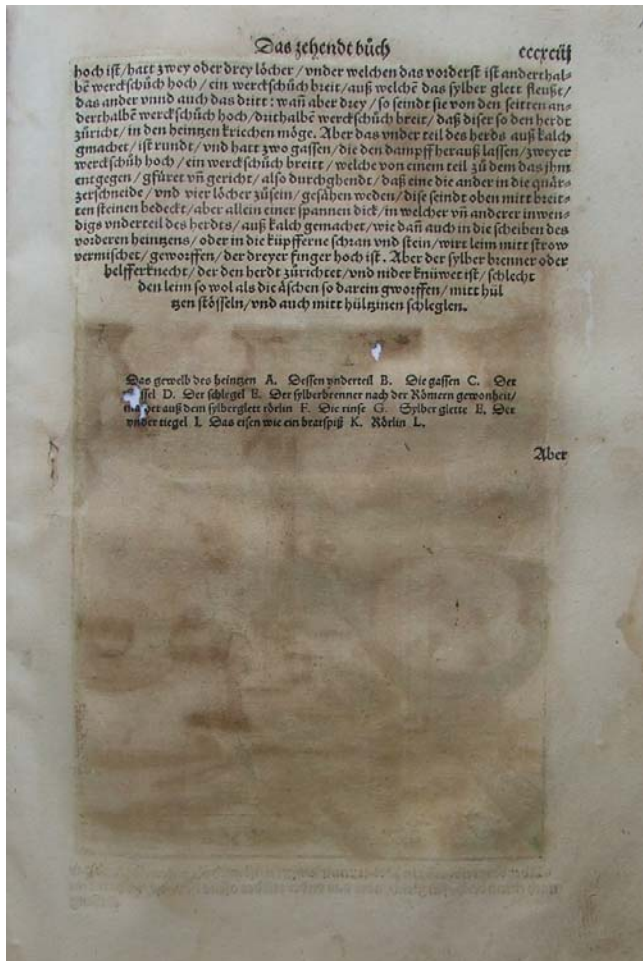 Das zehendt bůch cccxciij
hoch ist/hatt zwey oder drey löcher/vnder welchen das vorderst ist anderthal-
bē werckschůch hoch/ein werckschůch breit/auß welchē das sylber glett fleußt/
das ander vnnd auch das dritt: wañ aber drey/so seindt sie von den seitten an-
derthalbē werckschůch hoch/drithalbē werckschůch breit/daß diser so den herdt
zůricht/in den heintzen kriechen möge. Aber das vnder teil des herds auß kalch
gmachet/ist rundt/vnd hatt zwo gassen/die den dampff herauß lassen/zweyer
werckschůh hoch/ein werckschůch breitt/welche von einem teil zů dem das jhm
entgegen/gfüret vñ gericht/also durchghendt/daß eine die ander in die quär-
zerschneide/vnd vier löcher zůsein/gesähen weden/dise seindt oben mitt breit-
ten steinen bedeckt/aber allein einer spannen dick/in welcher vñ anderer inwen-
digs vnderteil des herdts/auß kalch gemachet/wie dañ auch in die scheiben des
vorderen heintzens/oder in die küpfferne schran vnd stein/wirt leim mitt strow
vermischet/geworffen/der dreyer finger hoch ist. Aber der sylber brenner oder
belfferknecht/der den herdt zůrichtet/vnd nider knüwet ist/schlecht
den leim so wol als die äschen so darein gworffen/mitt hül
tzen stösseln/vnd auch mitt hültzinen schleglen.
Das gewelb des heintzen A. Dessen vnderteil B. Die gassen C. Der
ssel D. Der schlegel E. Der sylberbrenner nach der Römern gewonheit/
der auß dem sylberglett rörlin F. Die rinse G. Sylber glette E. Der
vnder tiegel I. Das eisen wie ein bratspiß K. Rörlin L.
Aber